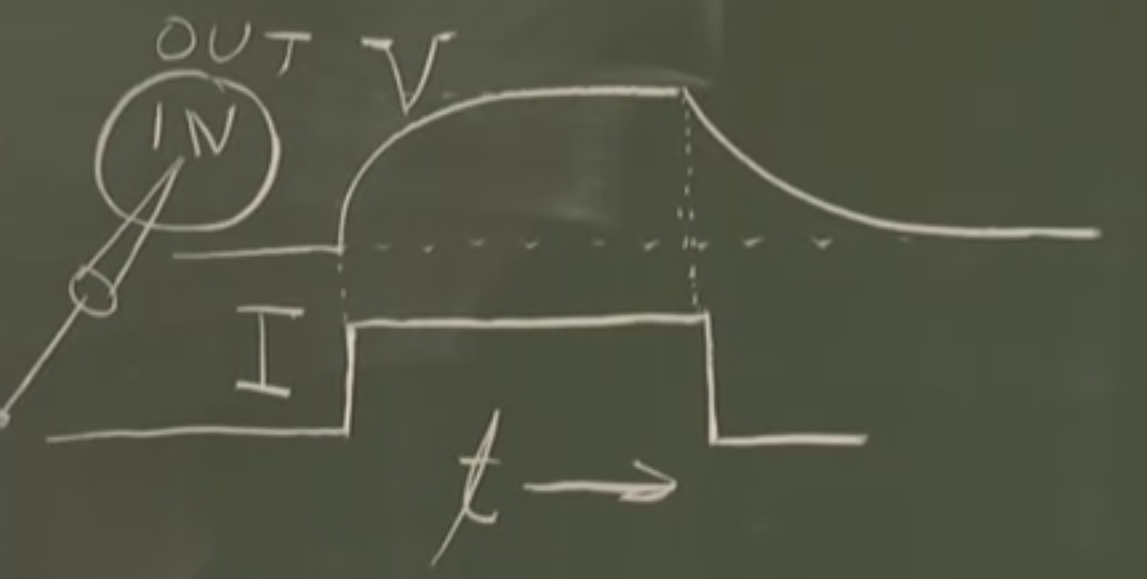 OUT
IN
V
I
t